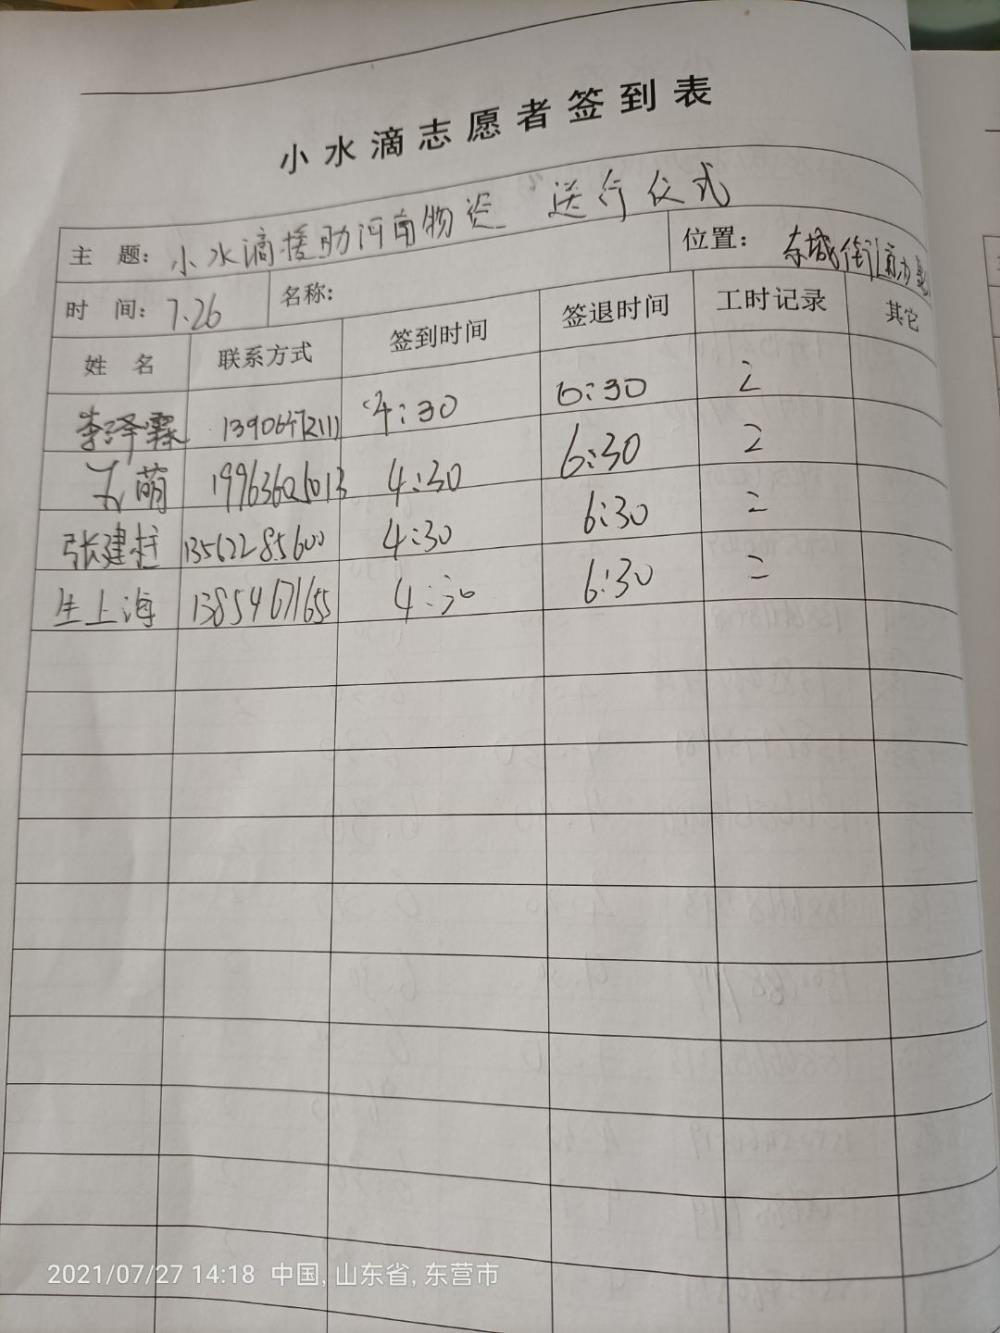 小水滴志愿者签到表
主 题: 小水滴援助河南物资"送行仪式 位置: 东城街道办
时 间: 7.26 名称:
姓 名 联系方式 签到时间 签退时间 工时记录 其它
李泽霖 4:30 6:30 2
萌 19963605013 4:30 6:30 2
张建柱 13562285600 4:30 6:30 2
生上海 13854671655 4:30 6:30 2
2021/07/27 14:18 中国, 山东省, 东营市